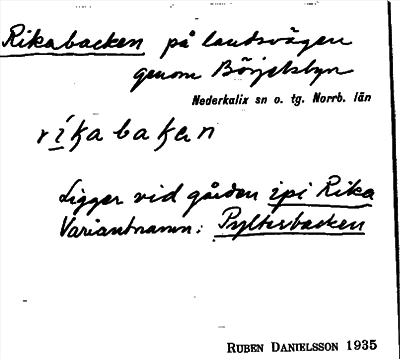 Rikabacken på landsvägen
genom Börjelsbyn
Nederkalix sn o. tg. Norrb. län
ríkabakan
Ligger vid gården ipi Rika
Variantnamn: Pyltersbacken
RUBEN DANIELSSON 1935